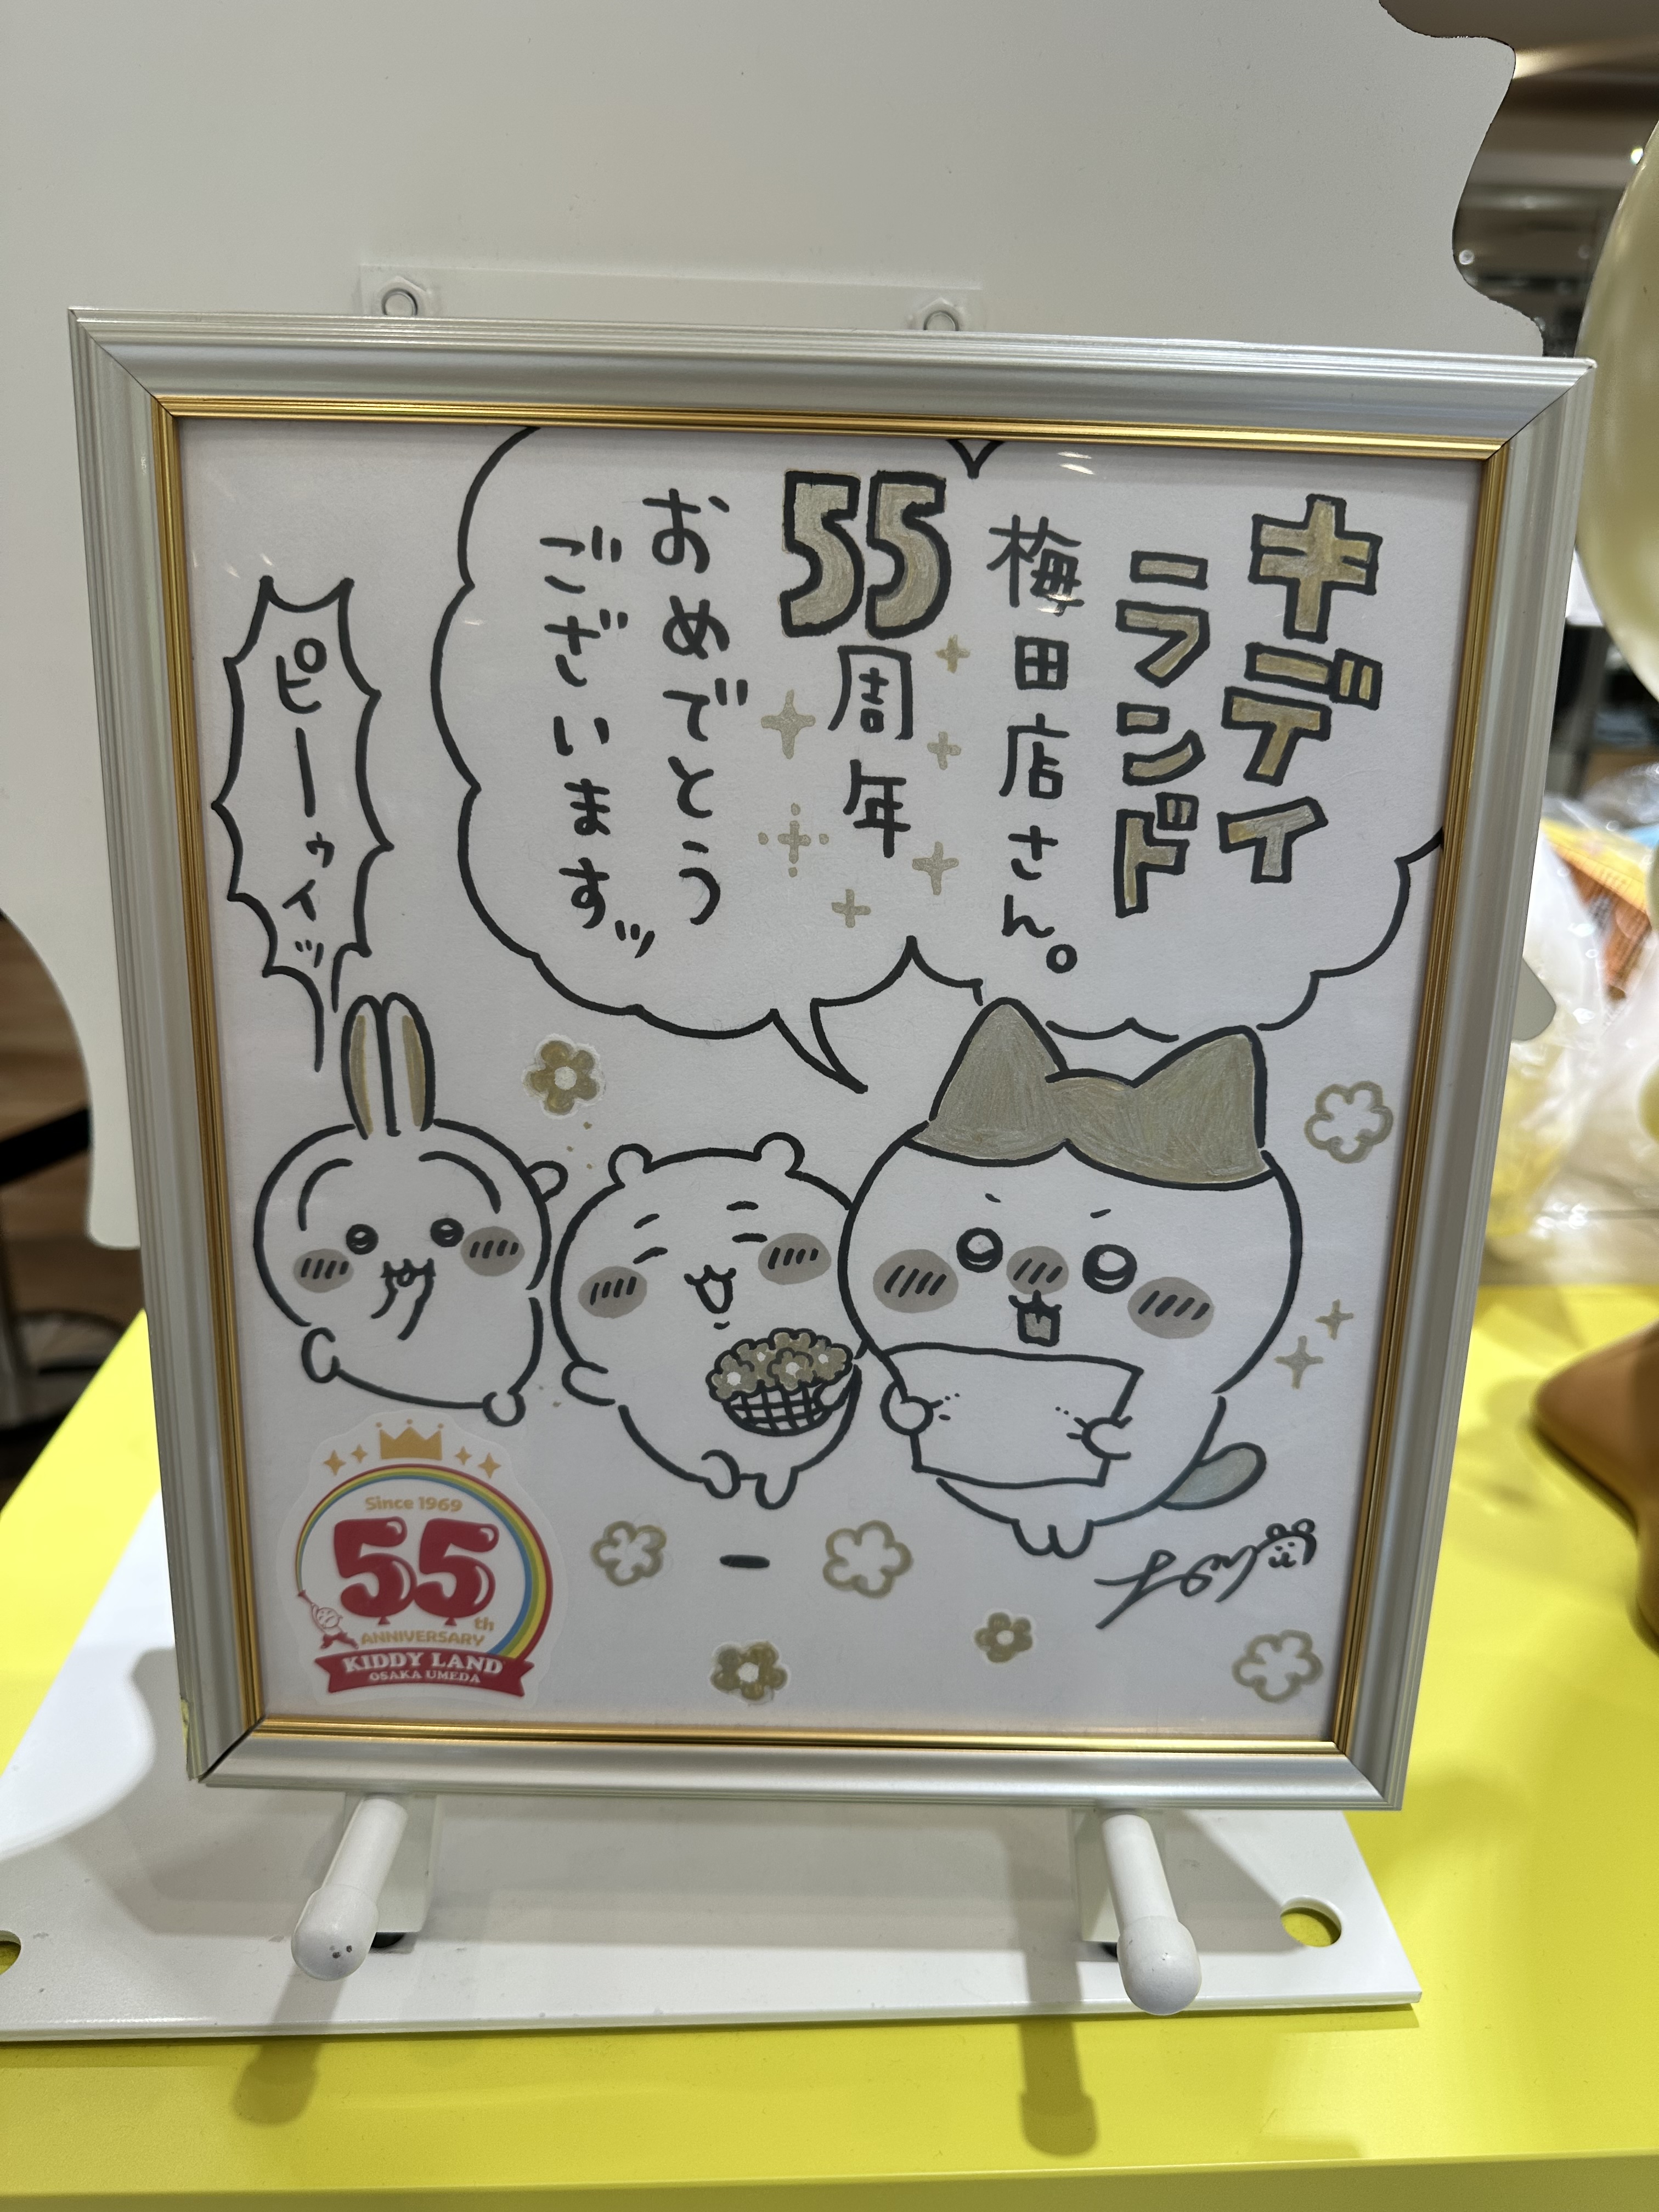 キディ
ランド
梅田店さん。
55周年
おめでとう
ございますッ
ピーゥィッ
Since 1969
55th
ANNIVERSARY
KIDDY LAND
OSAKA UMEDA